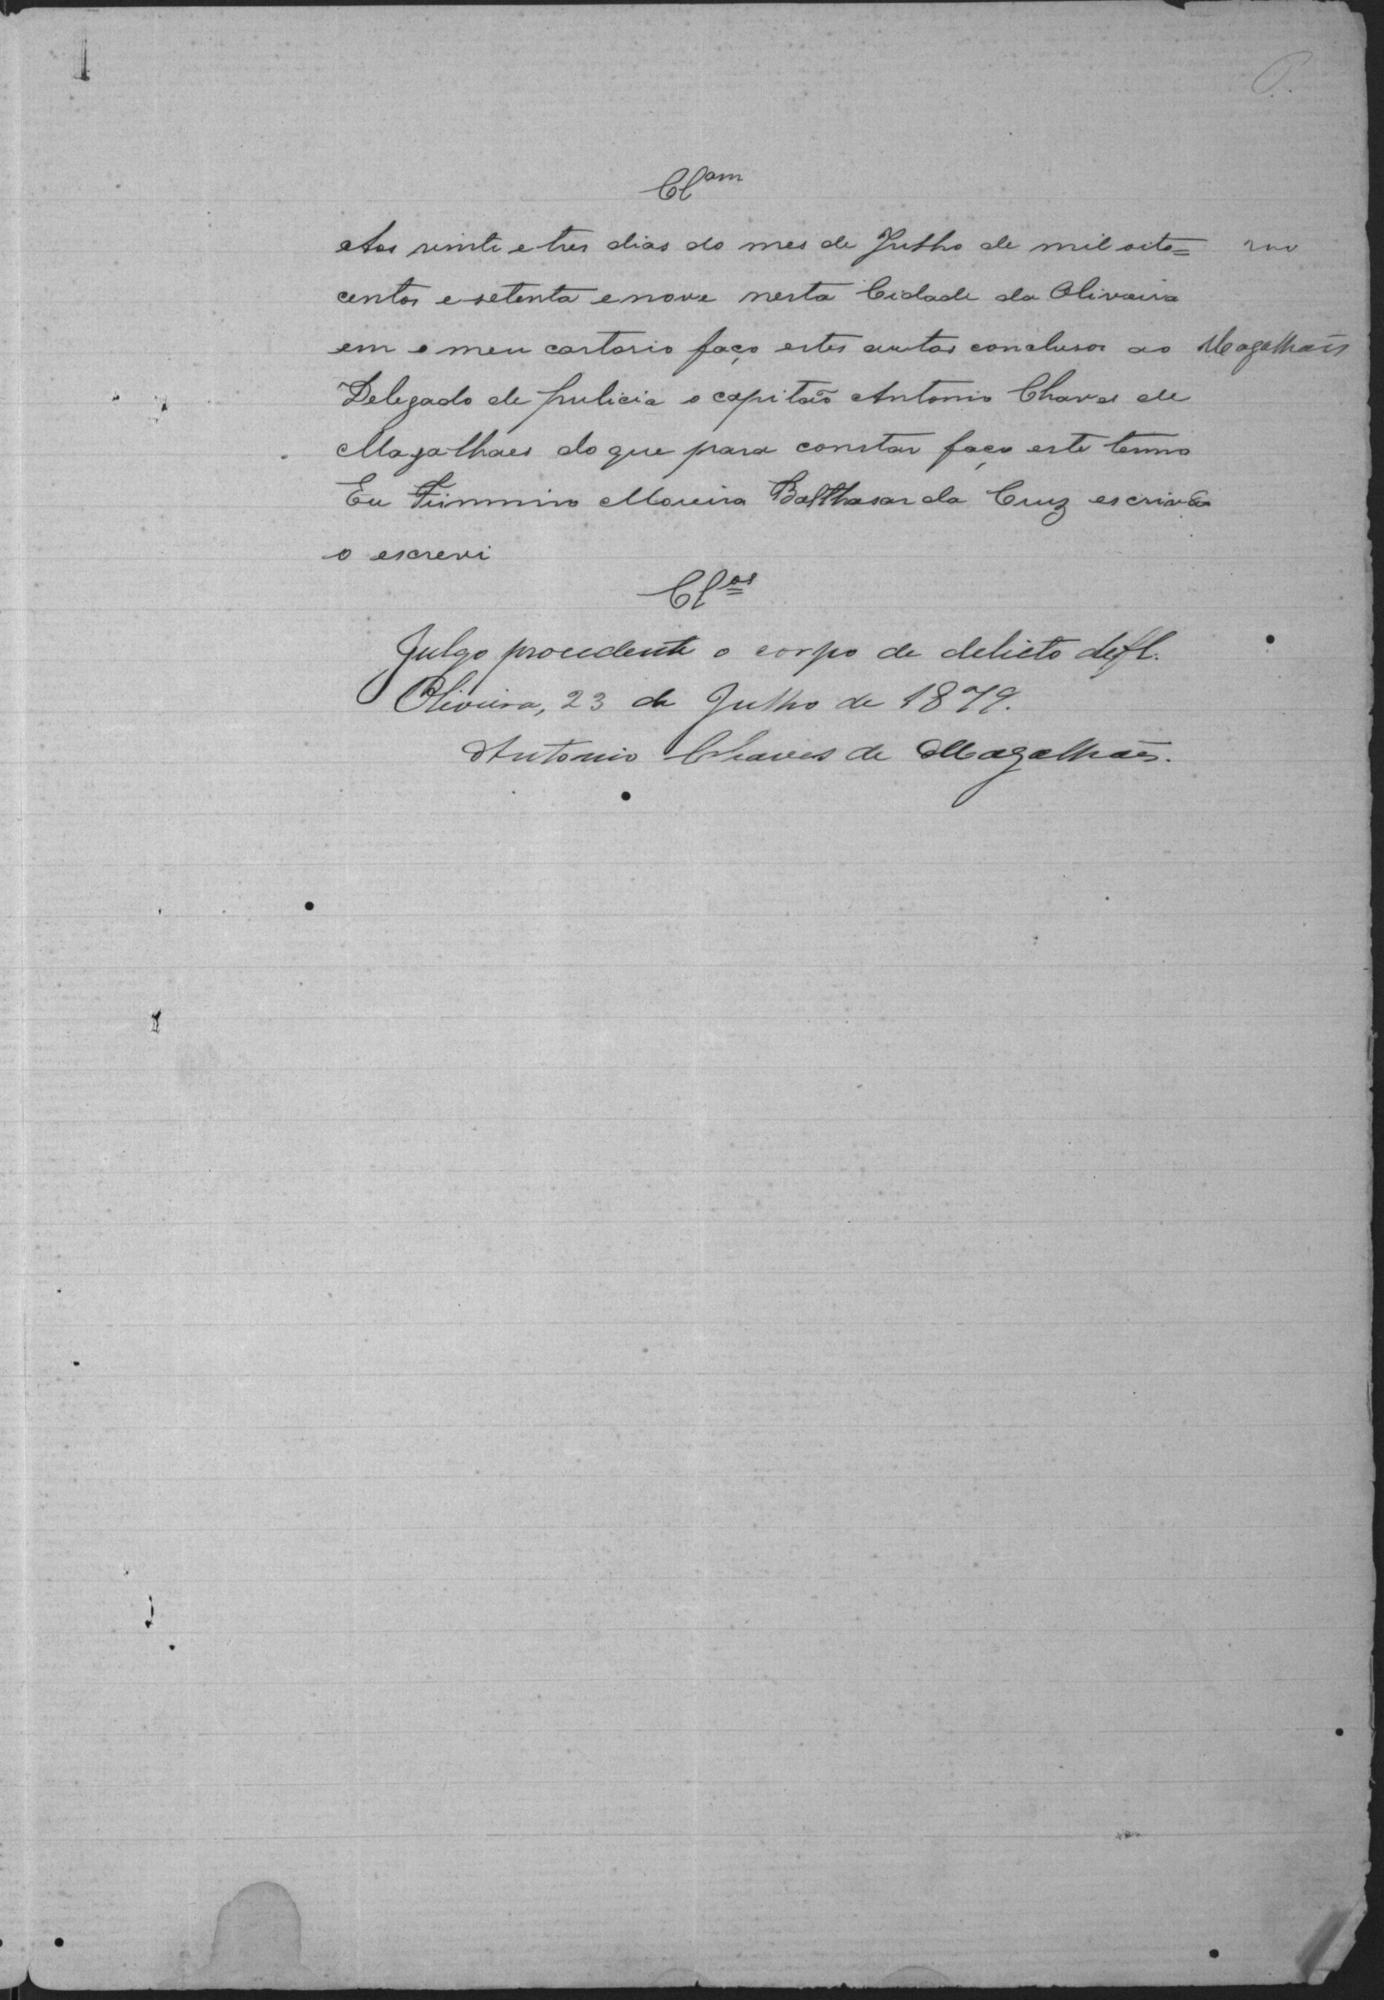 Cl.am
Aos vinte e tres dias do mes de Julho de mil oito= 200
centos e setenta e nove nesta Cidade da Oliveira
em o meu cartorio faço estes autos conclusos ao Magalhães
Delegado de Pulicia o capitão Antonio Chaves de
Magalhaes do que para constar faço este termo
Eu Firmino Moreira Balthasar da Cruz escrivão
o escrevi
Cl.os
Julgo procedente o corpo de delicto de fl.
Oliveira, 23 de Julho de 1879.
Antonio Chaves de Magalhães.